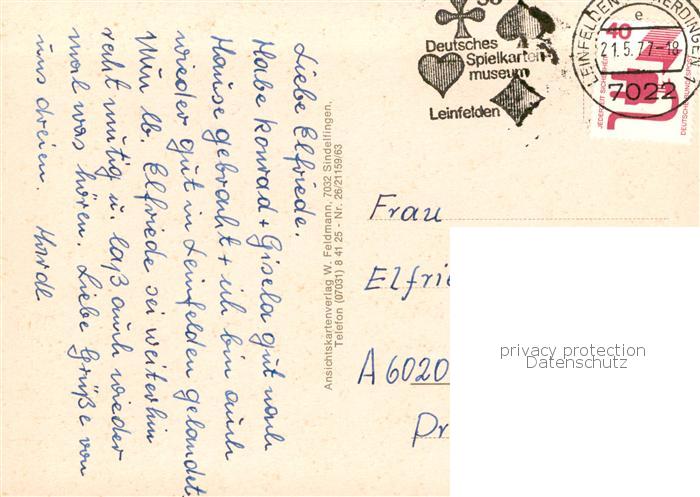 Liebe Elfriede.
Habe Konrad + Gisela gut nach
Hause gebracht + ich bin auch
wieder gut in Leinfelden gelandet.
Nun lb. Elfriede sei weiterhin
recht mutig u. laß auch wieder
mal was hören. Liebe Grüße von
uns dreien.
Ansichtskartenverlag W. Feldmann, 7032 Sindelfingen,
Telefon (07031) 8 41 25 - Nr. 26/21159/63
Deutsches
Spielkarten
museum
Leinfelden
21.5.77-18
7022
40
JEDERZEIT SICHERHEIT
Frau
Elfrie
A 6020
privacy protection
Datenschutz